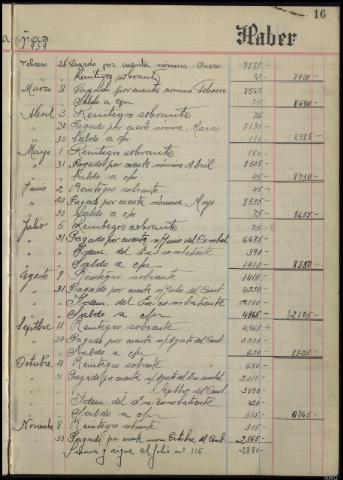 16
Haber
1939
Febrero 28 Pagado por cuenta nómina Enero 7875-
" " Reintegro sobrante 45- 7920-
Marzo 31 Pagado por cuenta nomina Febrero 8565
" " Saldo a c/n 75 8640-
Abril 3 Reintegro sobrante 75
" 30 Pagado por cuente nómina Marzo 8130-
" 30 Saldo a c/n 180
Mayo 1 Reintegro sobrante 180
" 31 Pagado por cuenta nómina Abril 8505-
" " Saldo a c/n 45- 8730-
Junio 2 Reintegro sobrante 45-
" 30 Pagado por cuenta nómina Mayo 8535-
" 30 Saldo a c/n 75 8655-
Julio 5 Reintegro sobrante 75
" 31 Pagado por cuenta n/ Junio del Combat. 6675-
" " Idem. del Ex-combatiente 390-
" " Saldo a c/n 1410-
Agosto 9 Reintegro sobrante 1410-
" 31 Pagado por cuenta n/ Julio del Comb.
" " Idem. del Ex-combatiente
" " Saldo a c/n 4365- 12105-
Septbre 11 Reintegro sobrante 4365-
" 30 Pagado por cuenta n/ Agosto del Comb.
" " Saldo a c/n 630
Octubre Reintegro sobrante 630-
" 31 Pagado por cuenta n/ Agosto del Ex-combat 2010-
" " " Septbre del Comb. 3090
" " Idem del Ex-combatiente 420
" " Saldo a c/n 315-
Novienbre 8 Reintegro sobrante 315
" 30 Pagado por cuenta nomina Octubre del Comb. 2565-
Suma y sigue al folio nº 116 2880-